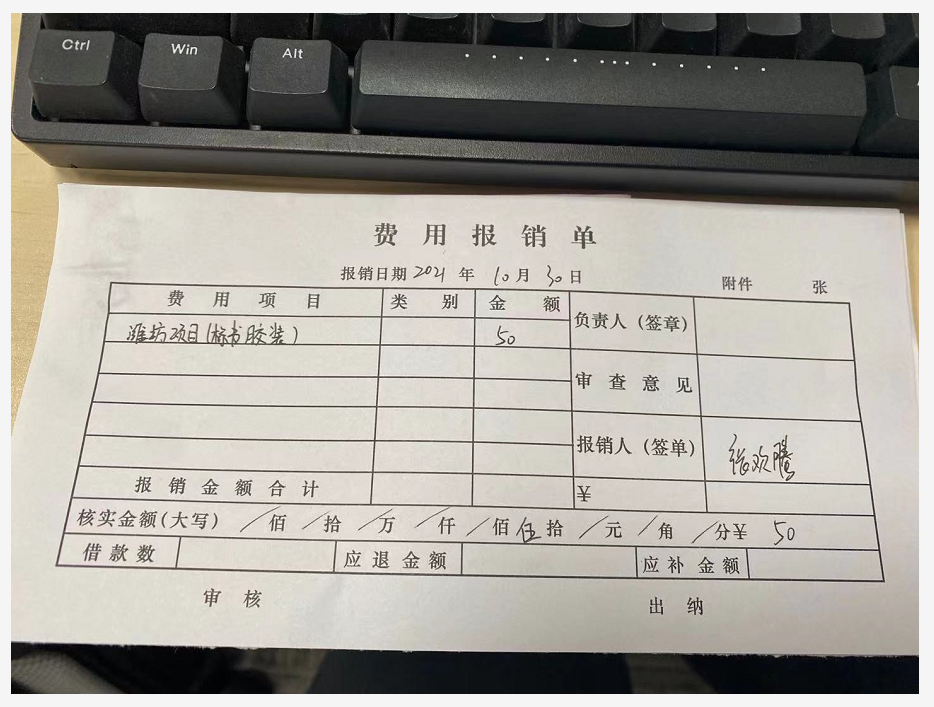 Ctrl Win Alt
费用报销单
报销日期 2021 年 10 月 30 日 附件 张
费用项目 类别 金额 负责人（签章）
潍坊项目(标书胶装) 50
审查意见
报销人（签单） 张欢腾
报销金额合计 ¥
核实金额(大写) /佰 /拾 /万 /仟 /佰 伍拾 /元 /角 /分¥ 50
借款数 应退金额 应补金额
审核 出纳